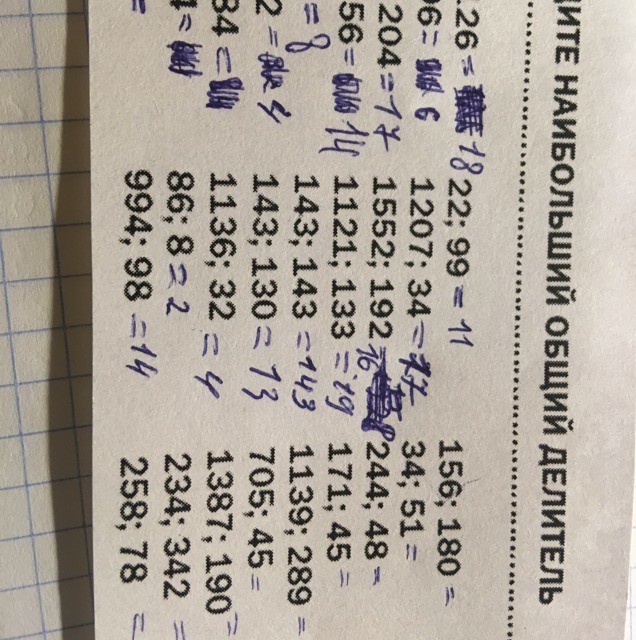 НАИБОЛЬШИЙ ОБЩИЙ ДЕЛИТЕЛЬ
26 = 18 22; 99 = 11 156; 180 =
6 = 6 1207; 34 = 17 34; 51 =
204 = 17 1552; 192 = 16 244; 48 =
56 = 14 1121; 133 = 19 171; 45 =
= 8 143; 143 = 143 1139; 289 =
2 = 4 143; 130 = 13 705; 45 =
84 = 1136; 32 = 4 1387; 190 =
= 86; 8 = 2 234; 342 =
= 994; 98 = 14 258; 78 =